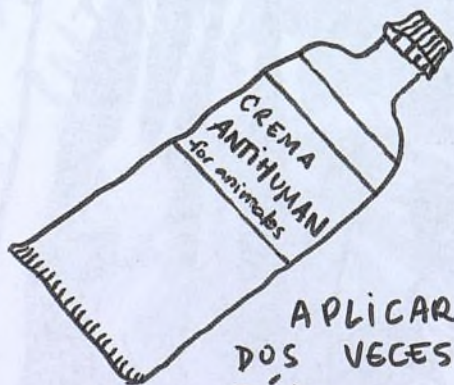 CREMA
ANTIHUMAN
for animales
APLICAR
DOS VECES